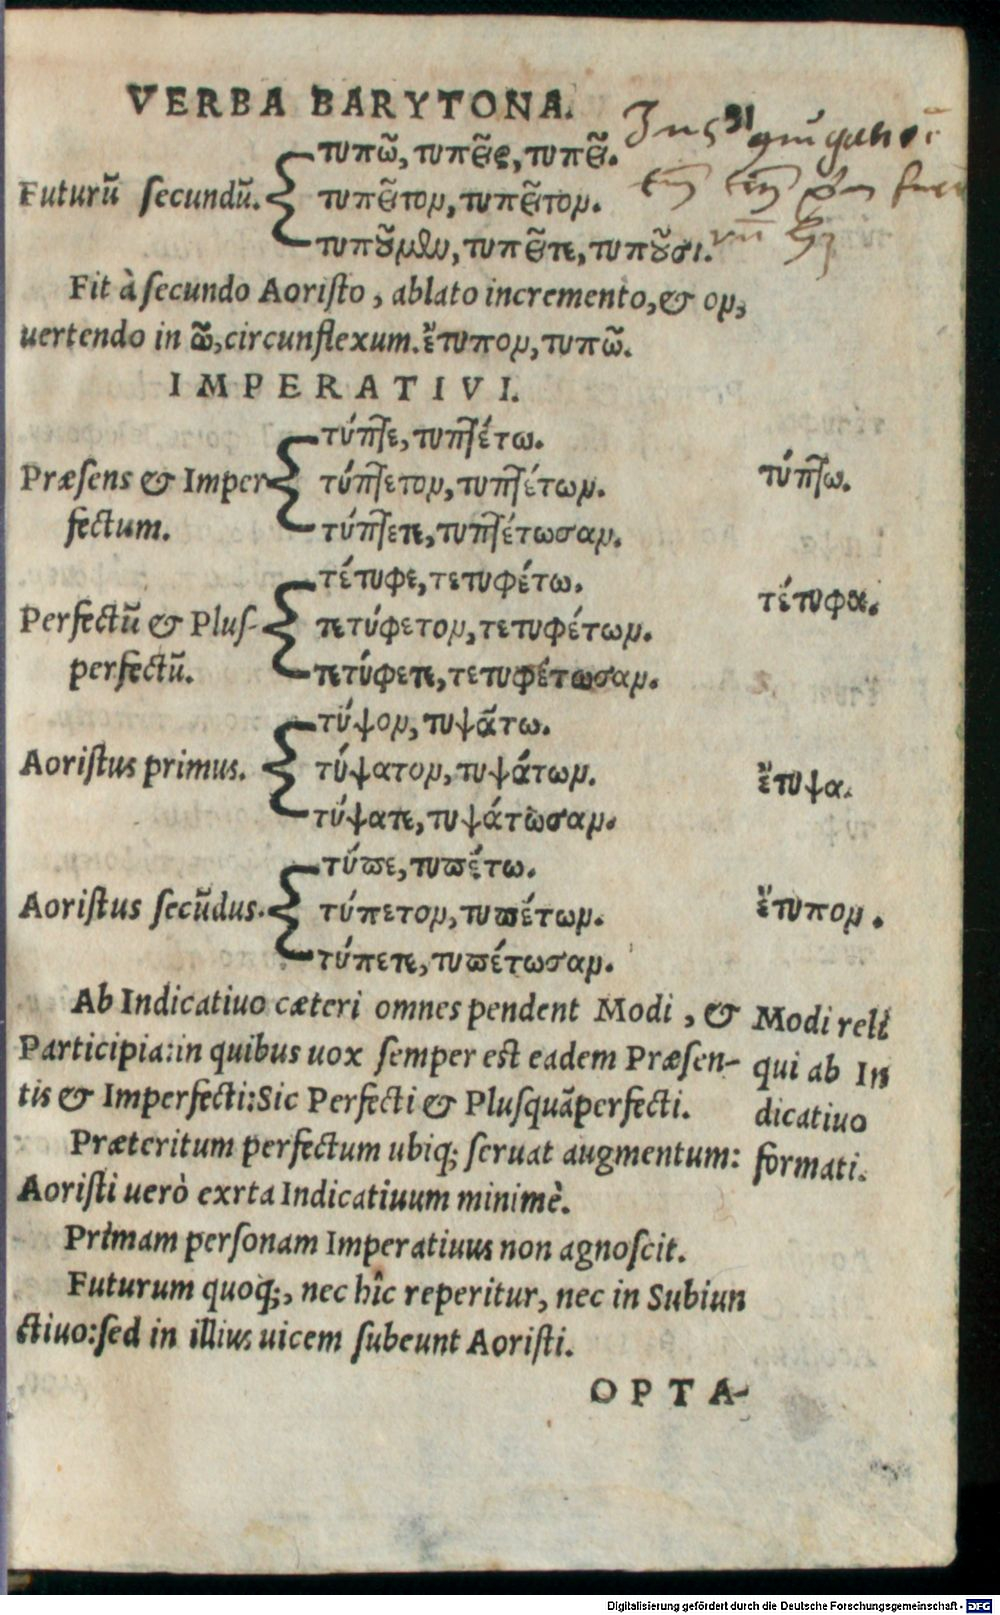 VERBA BARYTONA.
τυπῶ, τυπεῖς, τυπεῖ.
Futurū ſecundū. τυπεῖτον, τυπεῖτον.
τυποῦμεν, τυπεῖτε, τυποῦσι.
Fit à ſecundo Aoriſto, ablato incremento, & ον,
uertendo in ῶ, circunflexum. ἔτυπον, τυπῶ.
IMPERATIVI.
τύπτε, τυπτέτω.
Præſens & Imper τύπτετον, τυπτέτων. τύπτω.
fectum. τύπτετε, τυπτέτωσαν.
τέτυφε, τετυφέτω.
Perfectū & Pluſ- τετύφετον, τετυφέτων. τέτυφα.
perfectū. τετύφετε, τετυφέτωσαν.
τύψον, τυψάτω.
Aoriſtus primus. τύψατον, τυψάτων. ἔτυψα.
τύψατε, τυψάτωσαν.
τύπε, τυπέτω.
Aoriſtus ſecūdus. τύπετον, τυπέτων. ἔτυπον.
τύπετε, τυπέτωσαν.
Ab Indicatiuo cæteri omnes pendent Modi, &
Participia: in quibus uox ſemper est eadem Præſen-
tis & Imperfecti: Sic Perfecti & Pluſquāperfecti.
Præteritum perfectum ubiq; ſeruat augmentum:
Aoriſti uerò exrta Indicatiuum minimè.
Modi reli
qui ab In
dicatiuo
formati.
Primam perſonam Imperatiuus non agnoſcit.
Futurum quoq;, nec hîc reperitur, nec in Subiun
ctiuo: ſed in illius uicem ſubeunt Aoriſti.
OPTA-
Digitalisierung gefördert durch die Deutsche Forschungsgemeinschaft - DFG